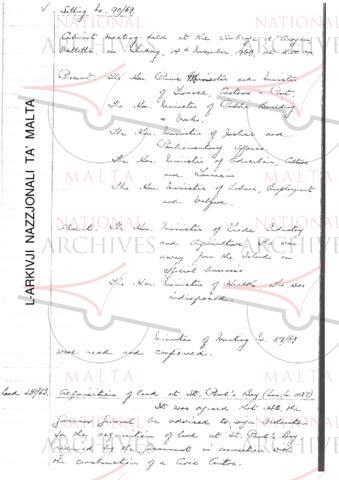 Sitting No. 90/69.
Cabinet meeting held at the Auberge d'Aragon
Valletta on Friday, 14th November, 1969, at 5.00 pm
Present: The Hon. Prime Minister and Minister
of Finance, Customs & Port.
The Hon. Minister of Public Building
& Works.
The Hon. Minister of Justice and
Parliamentary Affairs.
The Hon. Minister of Education, Culture
and Tourism
The Hon. Minister of Labour, Employment
and Welfare.
Absent: The Hon. Minister of Trade Industry
and Agriculture who was
away from the Island on
special business
The Hon. Minister of Health who was
indisposed.
Minutes of Meeting No. 89/69
were read and confirmed.
Land 281/63. Acquisition of land at St. Paul's Bay
It was agreed that H.E. the
Governor General be advised to sign declaration
for the acquisition of land at St. Paul's Bay
required by the Government in connection with
the construction of a Civic Centre.
L-ARKIVJI NAZZJONALI TA' MALTA
NATIONAL
MALTA
ARCHIVES